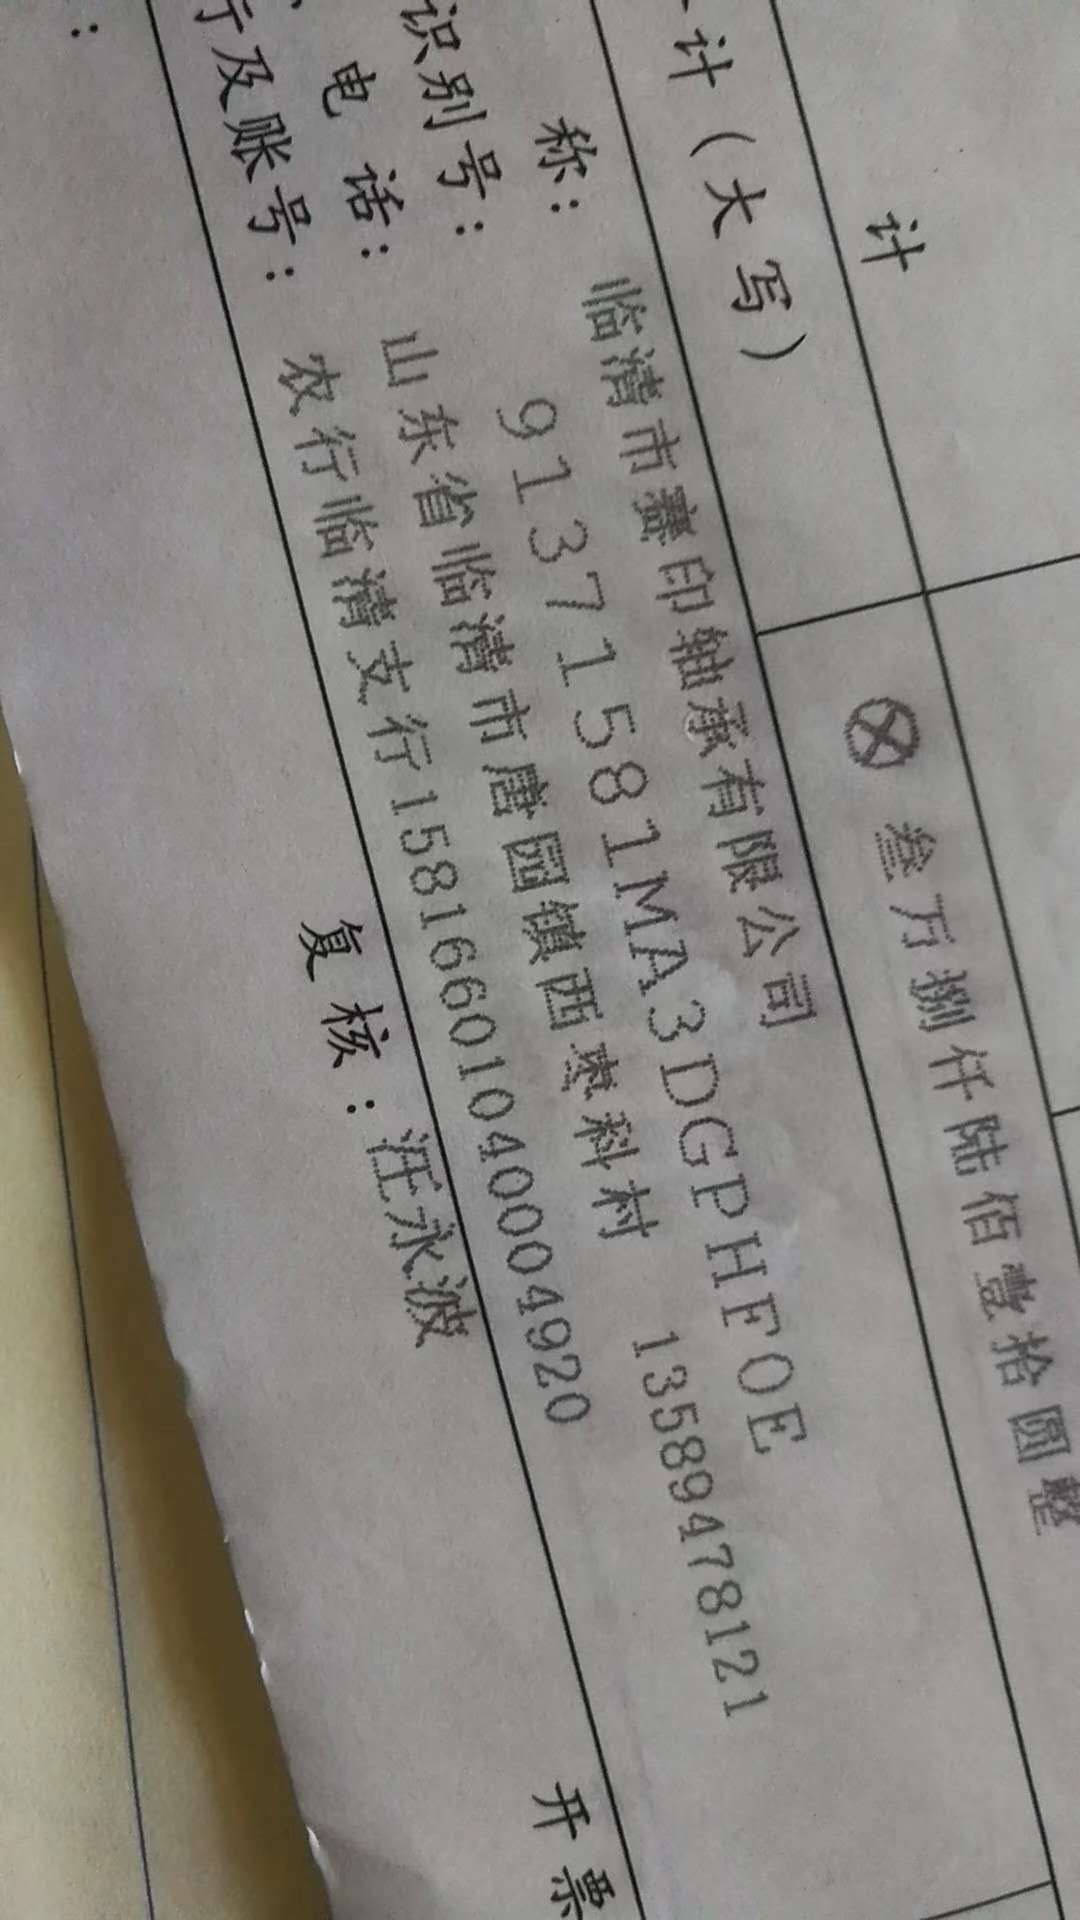 计
计（大写）
⊗ 叁万捌仟陆佰壹拾圆整
称：临清市嘉印轴承有限公司
识别号：91371581MA3DGPHF0E
电话：山东省临清市唐园镇西枣科村 13589478121
行及账号：农行临清支行15816601040004920
：
复核：汪永波
开票